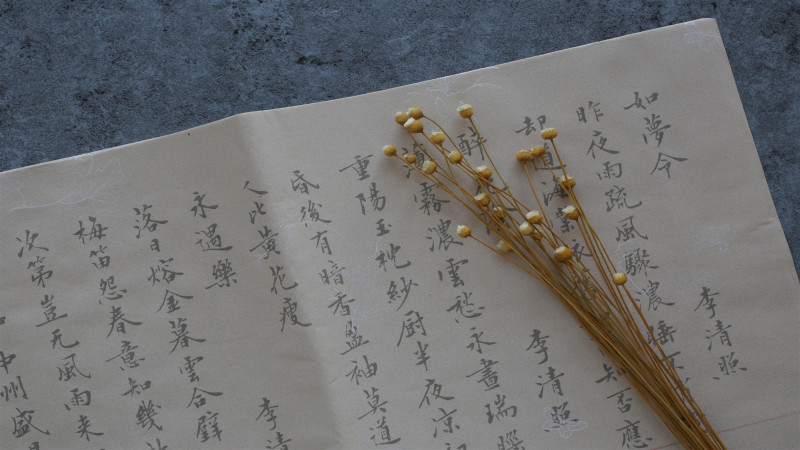 如夢令 李清照
昨夜雨疏風驟濃睡不
却道海棠依 知否應
醉 李清照
霧濃雲愁永晝瑞腦
重陽玉枕紗厨半夜凉初
昏後有暗香盈袖莫道
人比黄花瘦
永遇樂 李清
落日熔金暮雲合璧
梅笛怨春意知幾
次第豈无風雨来
中州盛